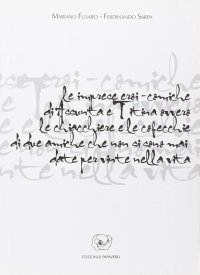 MARIANO FUSARO - FERDINANDO SAREN
le imprese eroi-comiche
di Assunta e Titina ovvero
le chiacchiere e le cofecchie
di due amiche che non si sono mai
date per vinte nella vita
EDIZIONI IL PAPAVERO